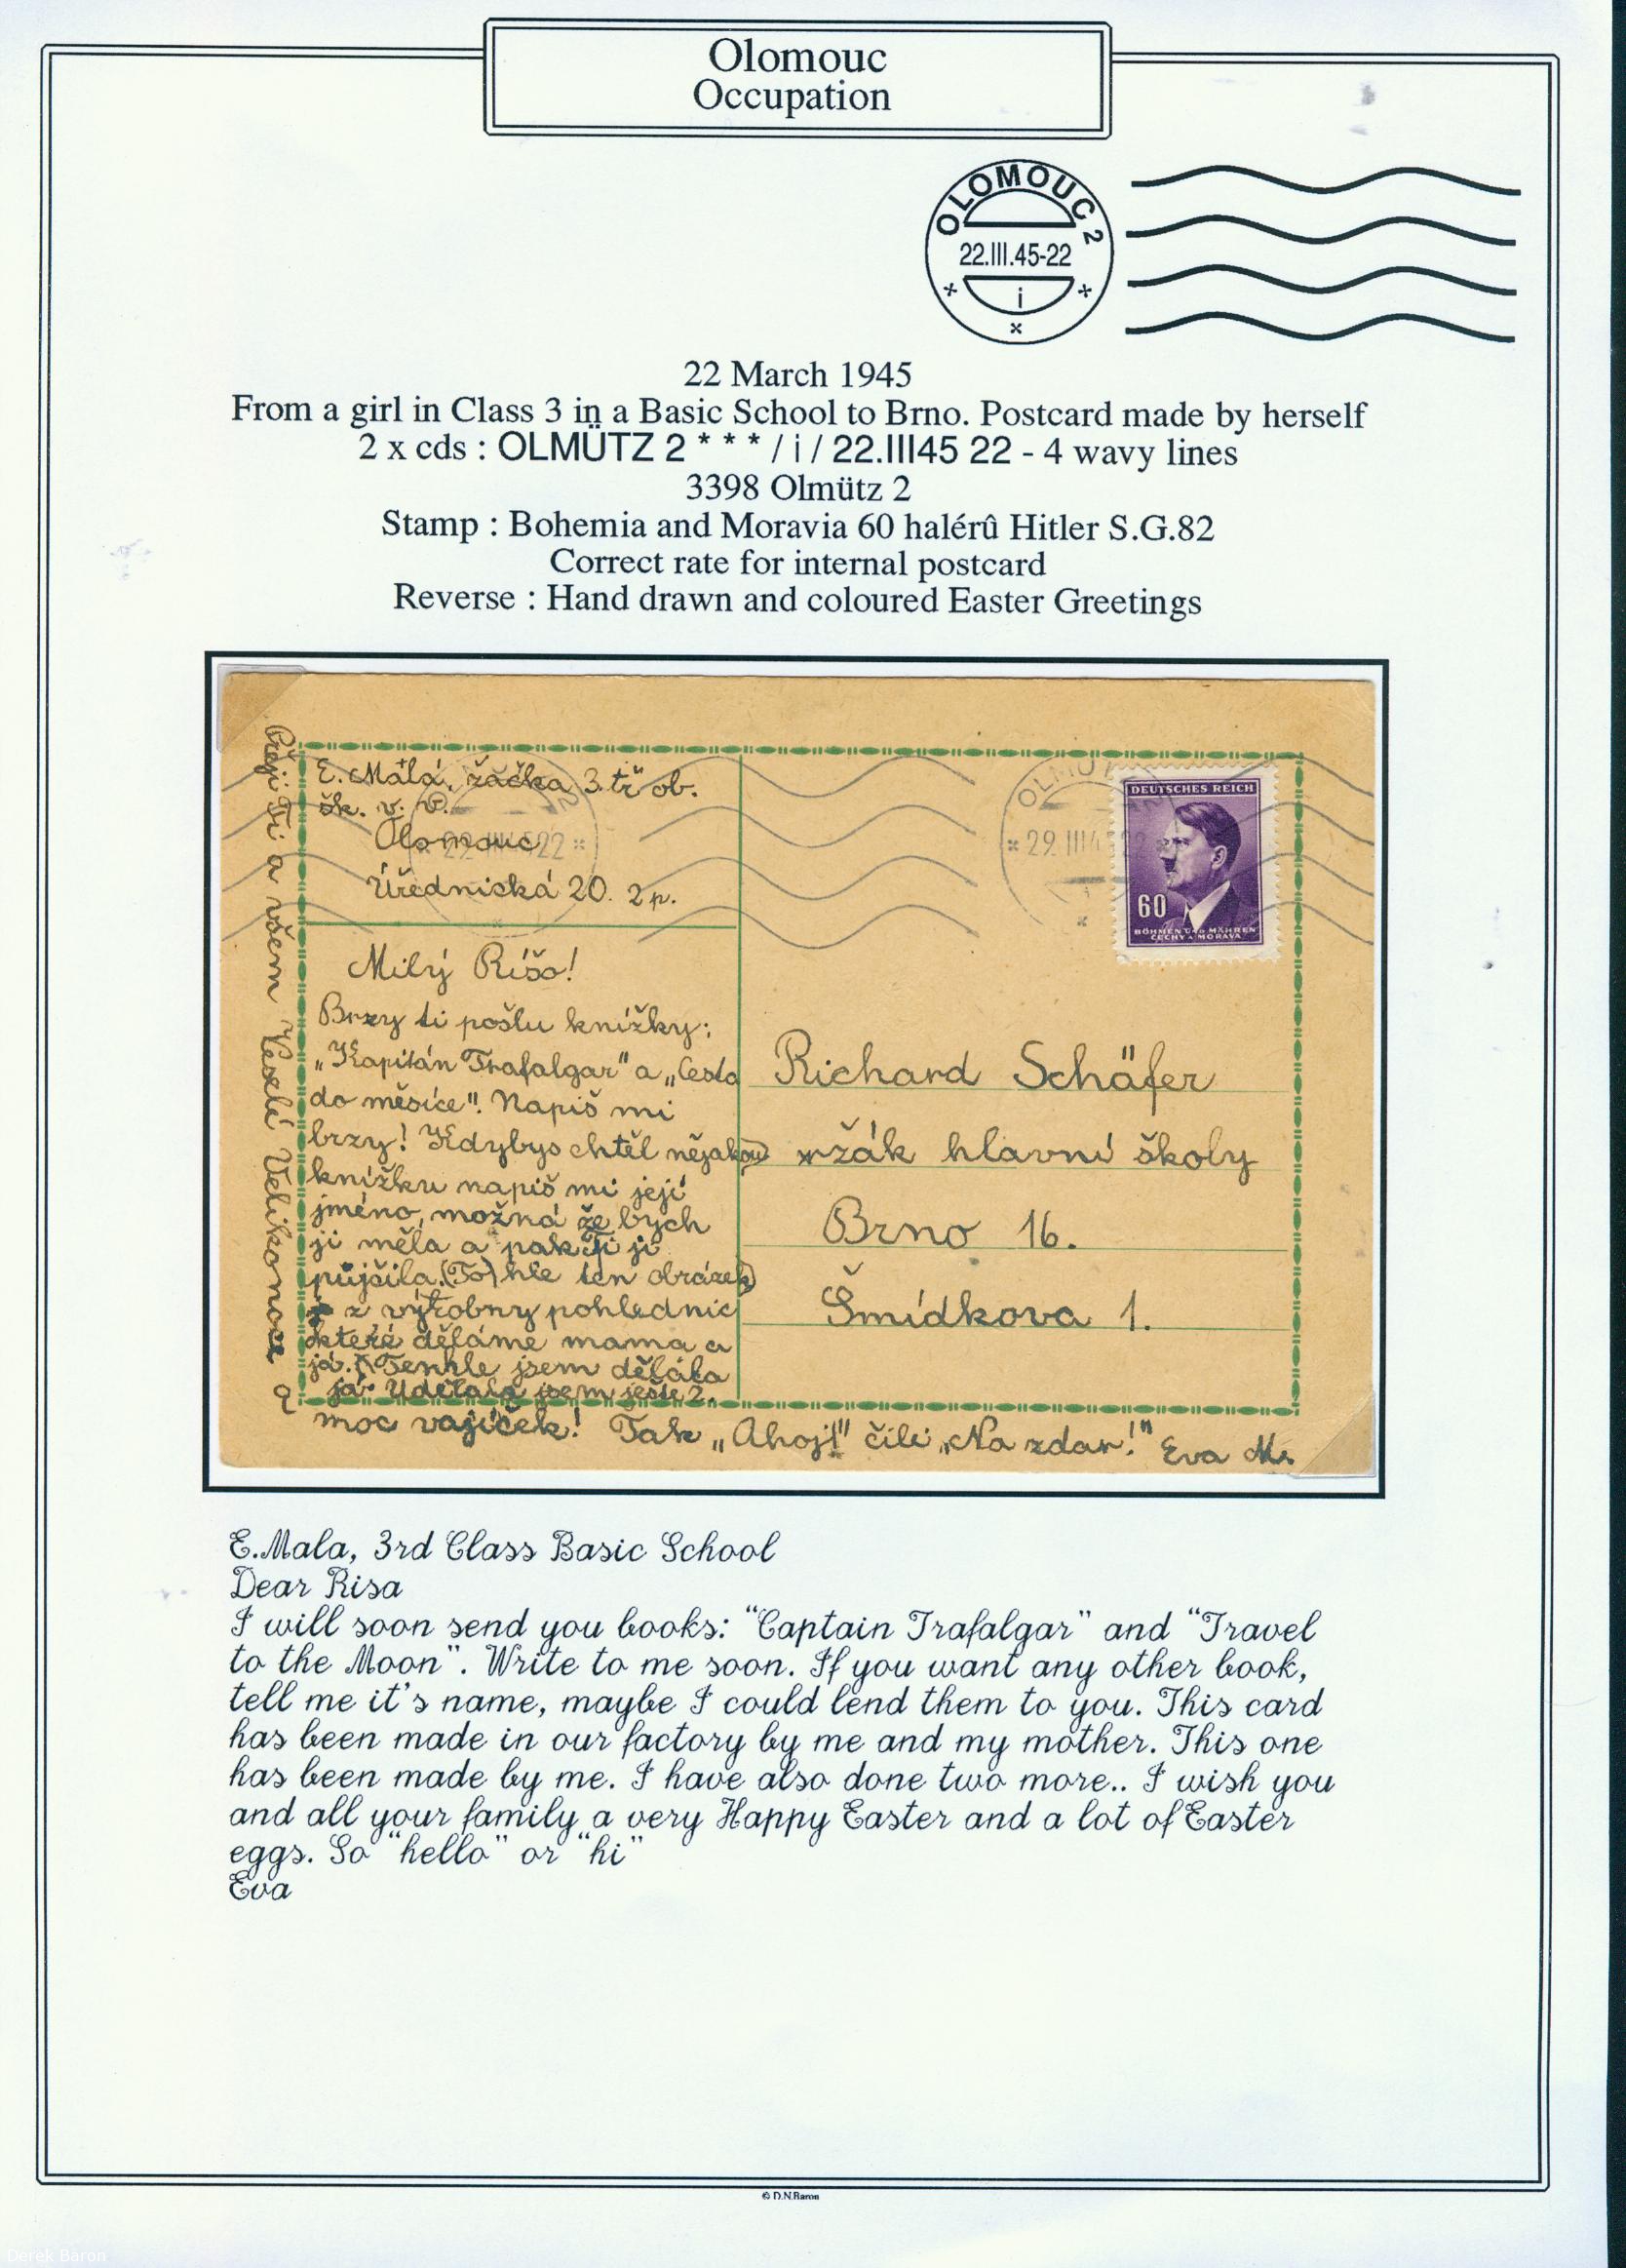 Olomouc
Occupation
OLOMOUC 2
22.III.45-22
i
22 March 1945
From a girl in Class 3 in a Basic School to Brno. Postcard made by herself
2 x cds : OLMÜTZ 2 * * * / i / 22.III45 22 - 4 wavy lines
3398 Olmütz 2
Stamp : Bohemia and Moravia 60 halérû Hitler S.G.82
Correct rate for internal postcard
Reverse : Hand drawn and coloured Easter Greetings
E. Malá, žačka 3. tř ob.
šk. v. v.
Olomouc
Úřednická 20. 2 p.
Milý Ríšo!
Brzy ti pošlu knížky:
„Kapitán Trafalgar" a „Cesta
do měsíce". Napiš mi
brzy! Kdybys chtěl nějakou
knížku napiš mi její
jméno, možná že bych
ji měla a pak Ti ji
půjčila. (To) hle ten obrázek
z výrobny pohlednic
které děláme mama a
já. Tenhle jsem dělala
já. Udělala jsem ještě 2.
Přeji Ti a všem Veselé Velikonoce a
moc vajíček! Tak „Ahoj!" čili „Na zdar!" Eva M.
OLMÜTZ
22 III 45 22
29 III 4
DEUTSCHES REICH
60
BÖHMEN UND MÄHREN
ČECHY A MORAVA
Richard Schäfer
žák hlavní školy
Brno 16.
Šmídkova 1.
E.Mala, 3rd Class Basic School
Dear Risa
I will soon send you books: "Captain Trafalgar" and "Travel
to the Moon". Write to me soon. If you want any other book,
tell me it's name, maybe I could lend them to you. This card
has been made in our factory by me and my mother. This one
has been made by me. I have also done two more.. I wish you
and all your family a very Happy Easter and a lot of Easter
eggs. So "hello" or "hi"
Eva
© D.N.Baron
Derek Baron